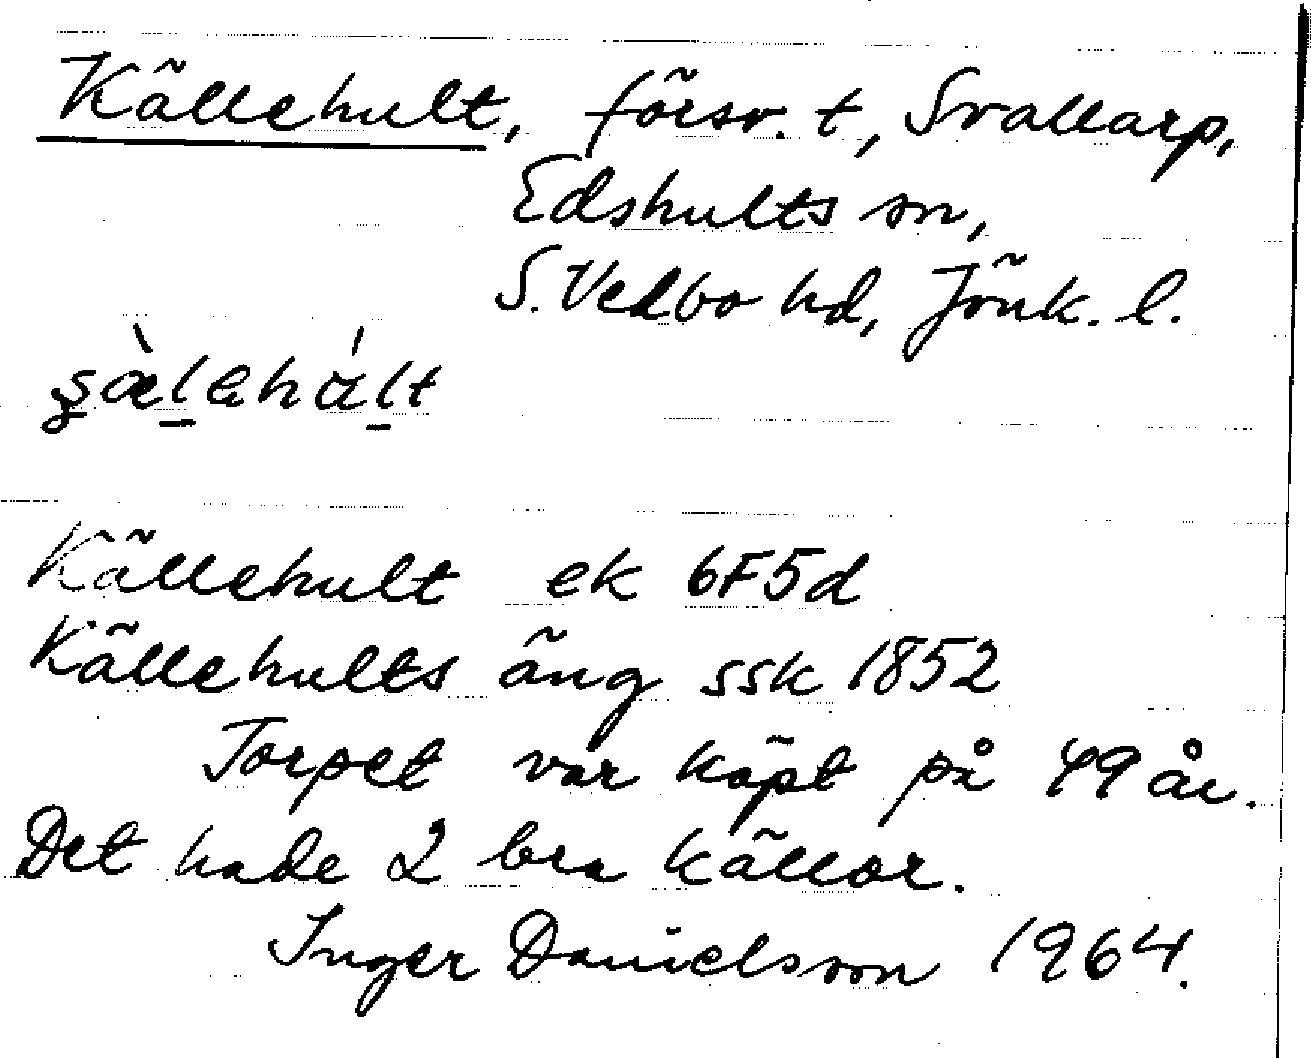 Källehult, försv. t, Svallarp,
Edshults sn,
S. Vedbo hd, Jönk. l.
Källehult ek 6F5d
Källehults äng ssk 1852
Torpet var köpt på 49 år.
Det hade 2 bra källor.
Inger Danielsson 1964.